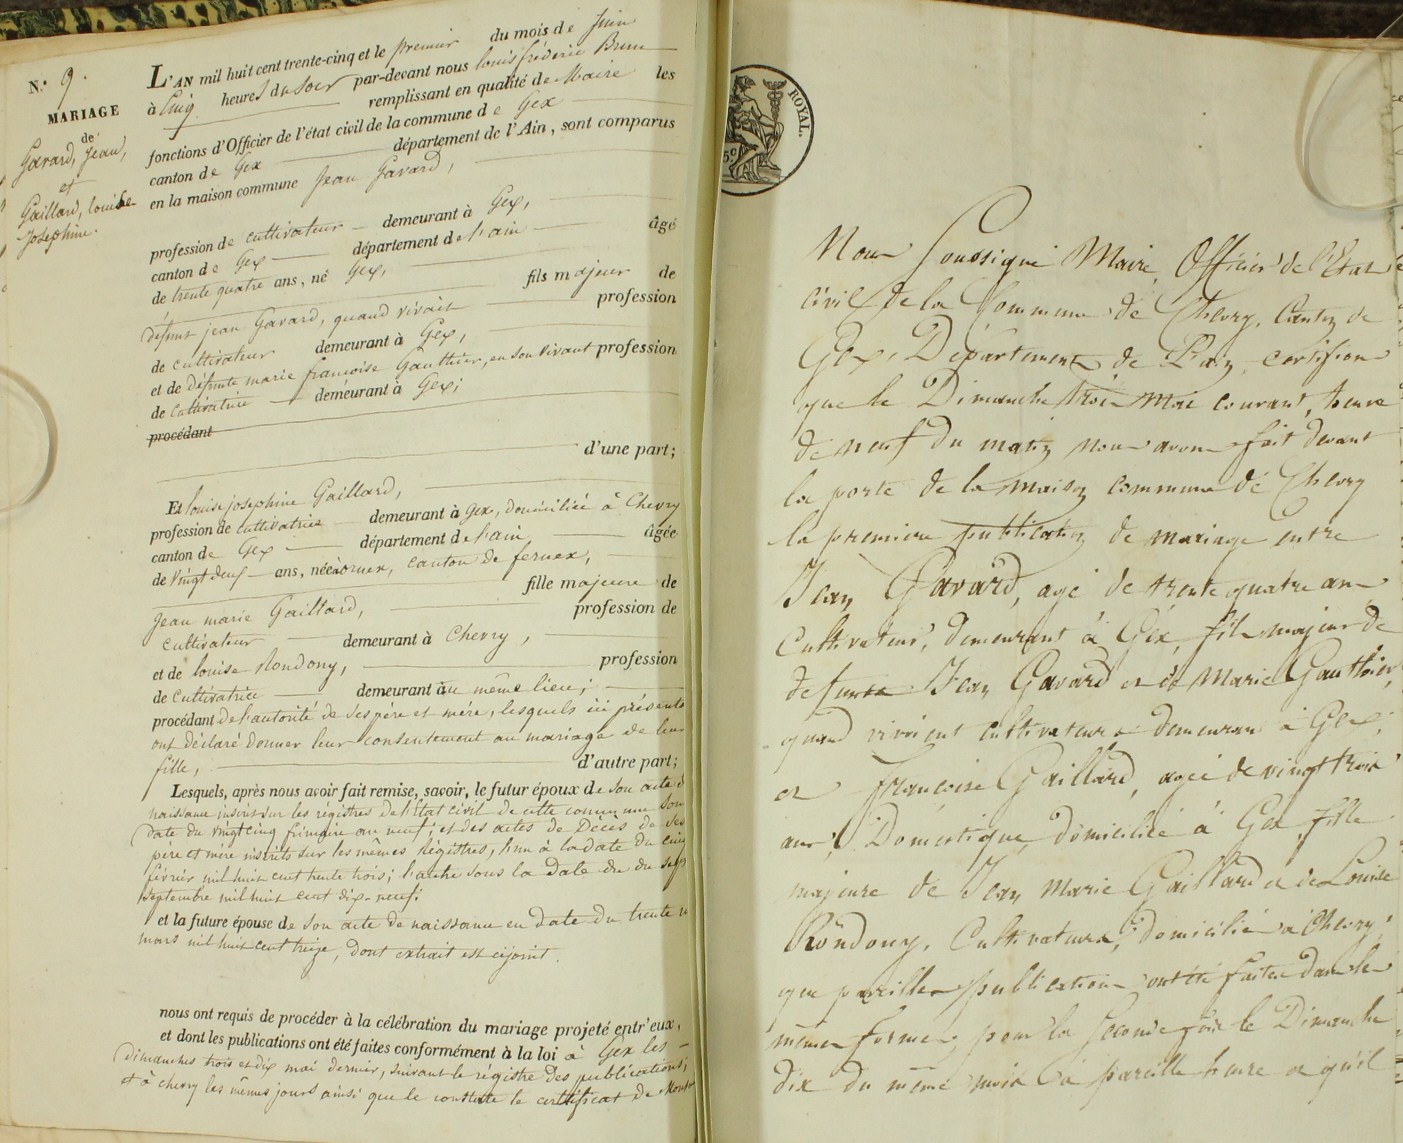 N.° 9.
MARIAGE
de
Gavard, Jean,
et
Gaillard, louise
Josephine.
L'AN mil huit cent trente-cinq et le premier du mois de Juin
à Cinq heures du soir par-devant nous louis frédéric Brun
remplissant en qualité de Maire les
fonctions d'Officier de l'état civil de la commune de Gex
canton de Gex département de l'Ain, sont comparus
en la maison commune Jean Gavard,
profession de cultivateur demeurant à Gex,
canton de Gex département de l'ain âgé
de trente quatre ans, né Gex,
fils majeur de
défunt jean Gavard, quand vivait profession
de cultivateur demeurant à Gex,
et de défunte marie francoise Gauthier, en son vivant profession
de cultivatrice demeurant à Gex;
procédant
d'une part;
Et louise josephine Gaillard,
profession de cultivatrice demeurant à Gex, domiciliée à Chevry
canton de Gex département de l'ain, âgée
de vingt deux ans, née à ornex, canton de fernex,
fille majeure de
Jean marie Gaillard, profession de
cultivateur demeurant à Chevry,
et de louise Rondony, profession
de Cultivatrice demeurant au même lieu;
procédant de l'autorité de ses père et mère, lesquels ici présents
ont déclaré donner leur consentement au mariage de leur
fille, d'autre part;
Lesquels, après nous avoir fait remise, savoir, le futur époux de son acte d
naissance inscrit sur les régistres de l'état civil de cette commune sous
date du vingt cinq frimaire an neuf; et des actes de Décès de ses
père et mère inscrits sur les mêmes Régistres, l'un à la date du cinq
février mil huit cent trente trois; l'autre sous la date du du sept
septembre mil huit cent dix-neuf;
et la future épouse de son acte de naissance en date du trente
mars mil huit cent treize, dont extrait est cijoint.
nous ont requis de procéder à la célébration du mariage projeté entr'eux,
et dont les publications ont été faites conformément à la loi à Gex les
dimanches trois et dix mai dernier, suivant le régistre des publications;
et à chevry les mêmes jours ainsi que le constate le certificat de
ROYAL.
5c
Nous Soussigné Maire, Officier de l'Etat
civil de la Commune de Chevry, Canton de
Gex, Département de l'Ain, certifions
que le Dimanche trois Mai courant, heure
de neuf du matin nous avons fait devant
la porte de la maison commune de Chevry
la premiere publication de mariage entre
Jean Gavard, agé de trente quatre ans
Cultivateur, demeurant à Gex, fils majeur de
defunts Jean Gavard et de Marie Gauthier,
quand vivoient cultivateurs demeurans à Gex;
et Françoise Gaillard, agée de vingt trois
ans, Domestique domiciliée à Gex, fille
majeure de Jean Marie Gaillard et de Louise
Rondony, Cultivateurs, domiciliés à Chevry;
que pareilles publications ont été faites dans les
mêmes formes pour la seconde fois le Dimanche
dix du même mois à pareille heure et qu'il